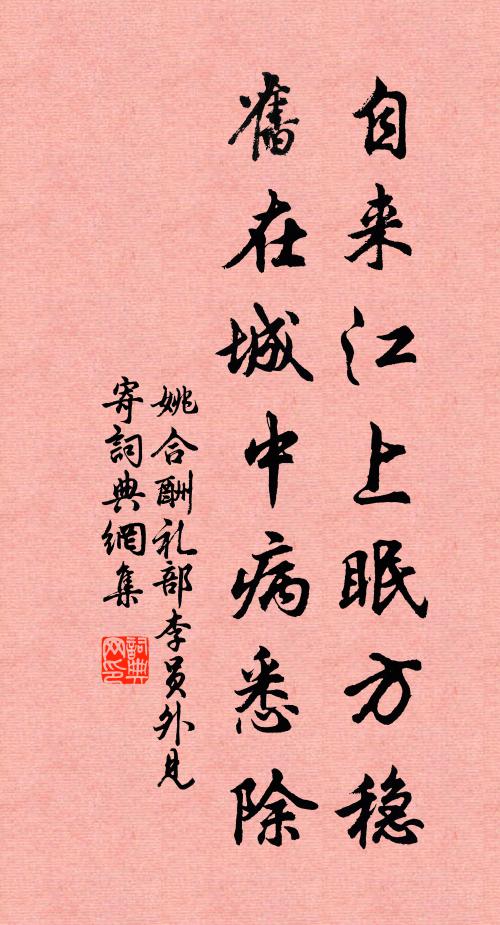 自来江上眠方稳
舊在城中病悉除
姚合酬礼部李员外见
寄詞典網集
詞典
网印